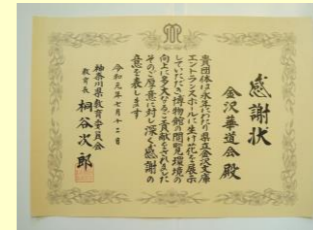 感謝状
金沢華道会殿
貴団体は永年にわたり県立金沢文庫
エントランスホールに生け花を展示
していただき博物館の閲覧環境の
向上に多大なるご貢献をされました
そのご厚意に対し深く感謝の
意を表します
令和元年七月十二日
神奈川県教育委員会
教育長 桐谷次郎